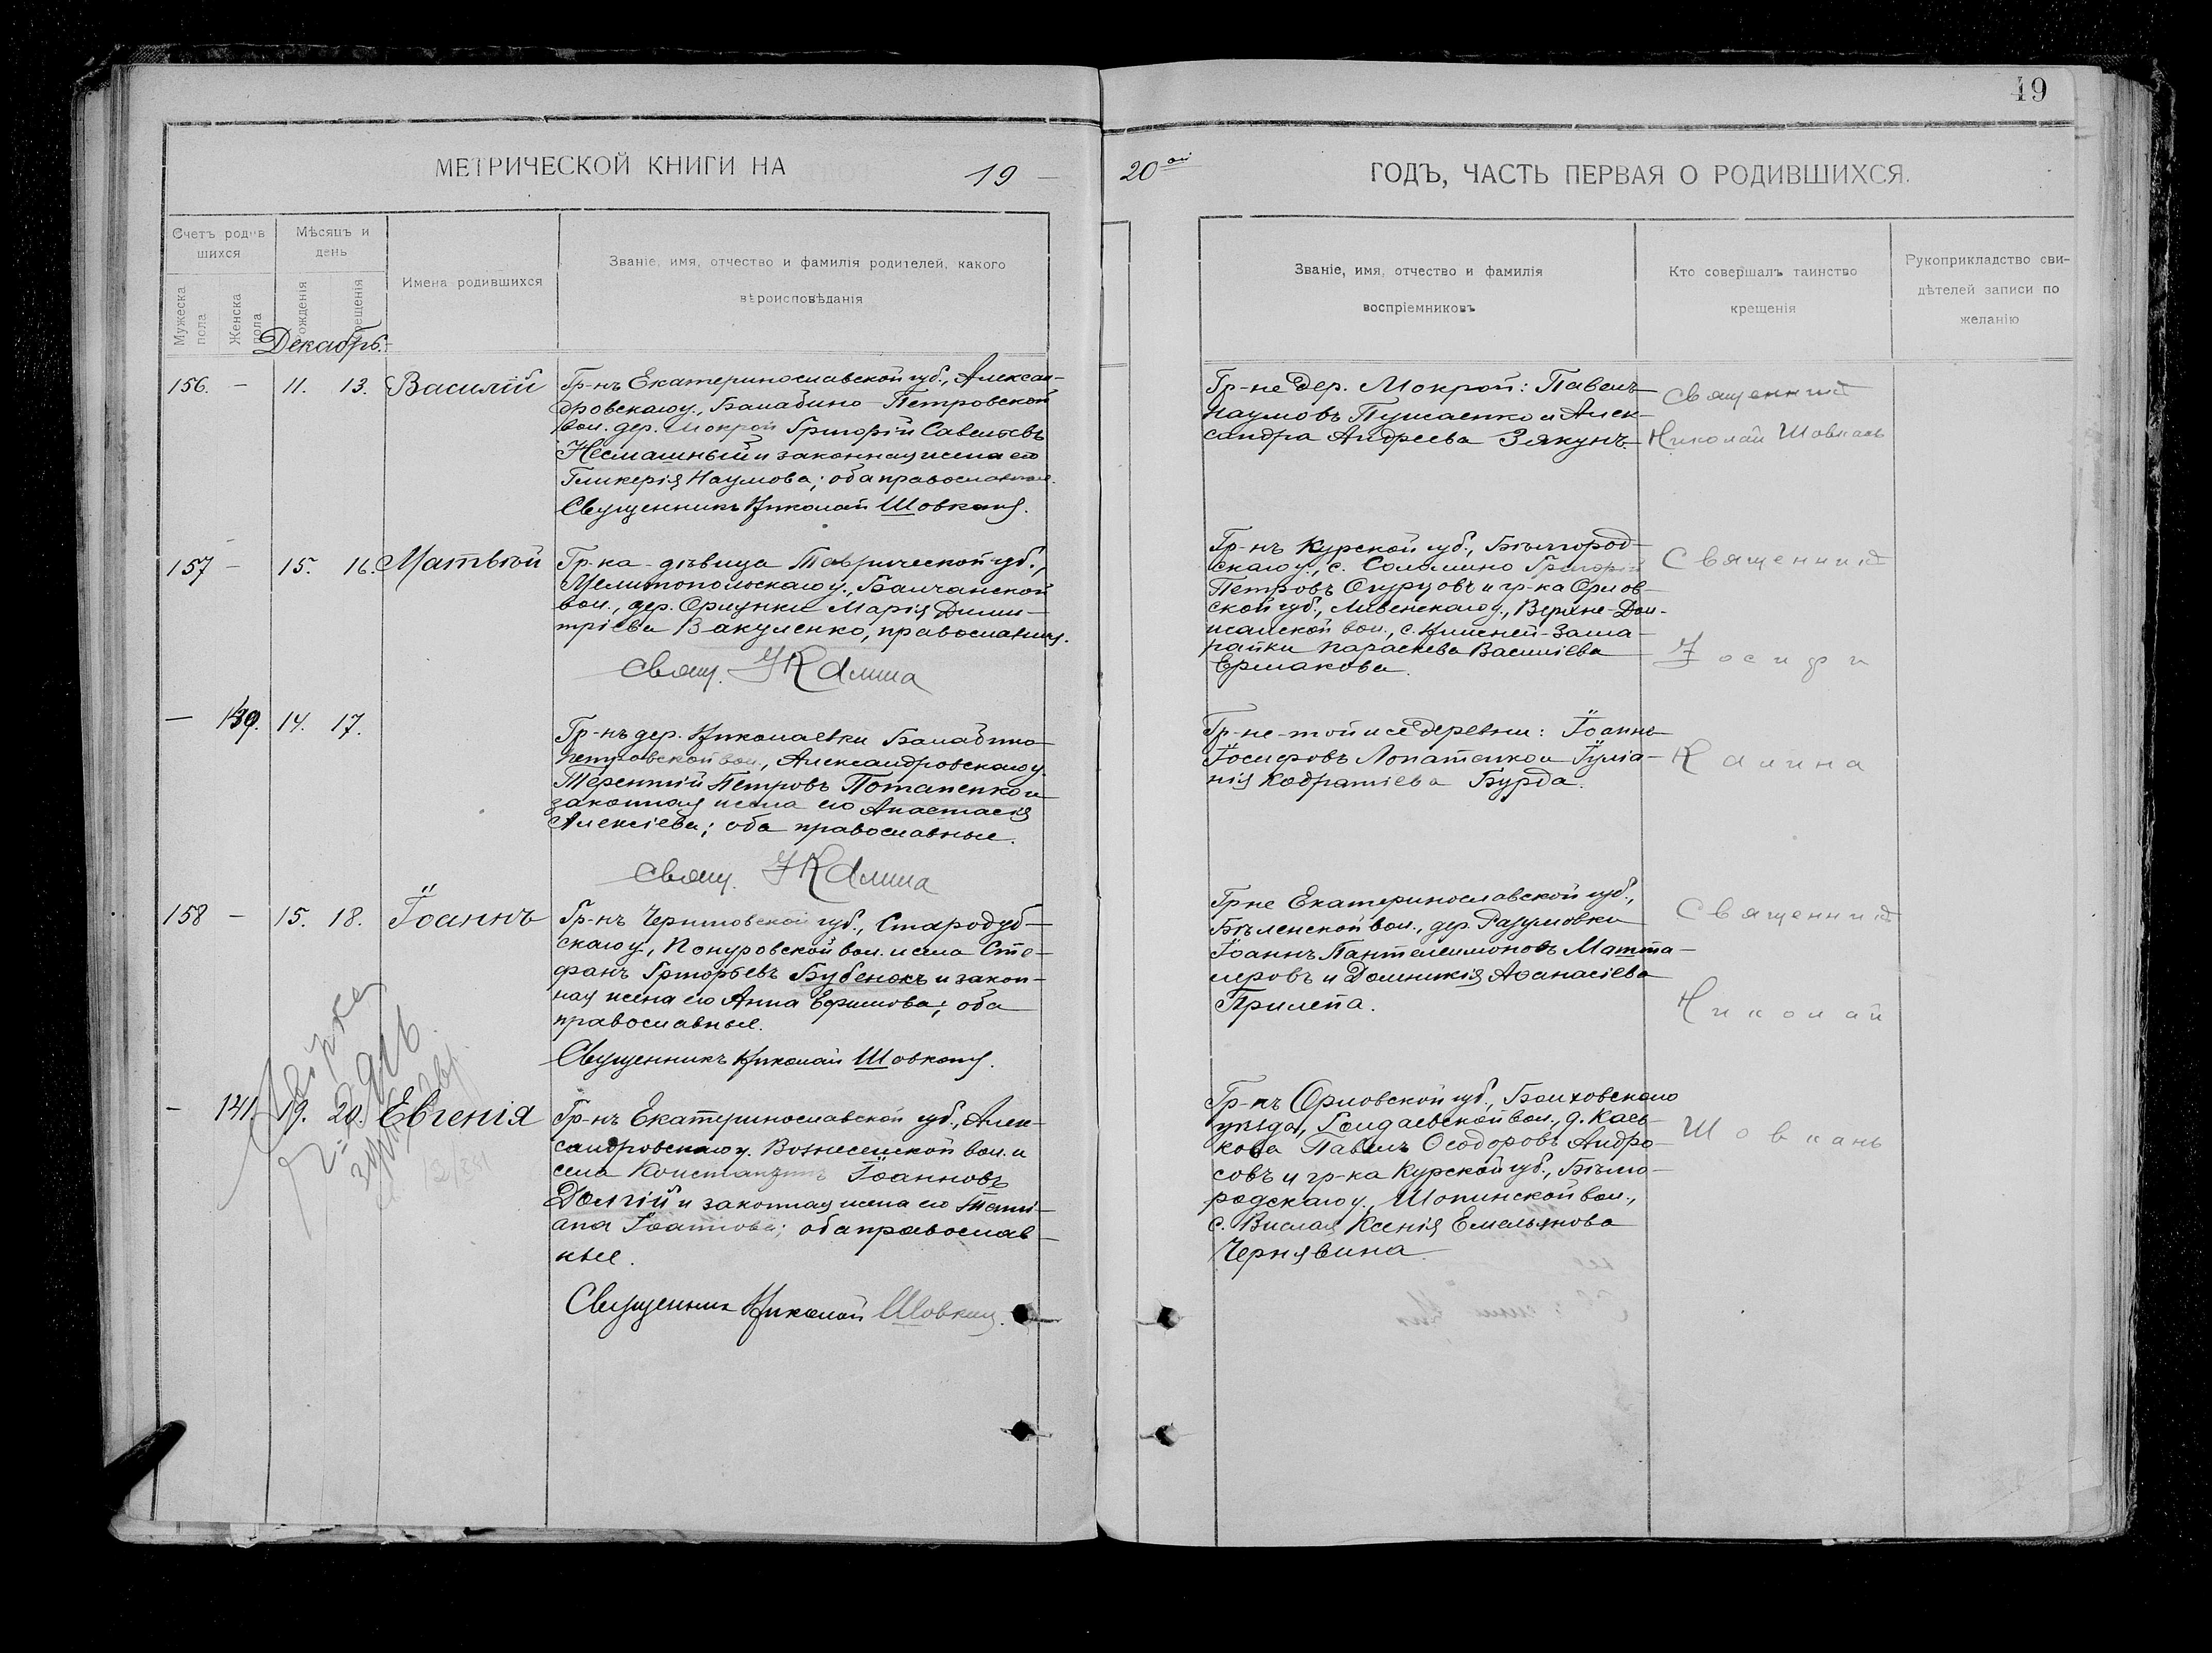 49
МЕТРИЧЕСКОЙ КНИГИ НА 19
20ой ГОДЪ, ЧАСТЬ ПЕРВАЯ О РОДИВШИХСЯ.
Счетъ родив
шихся
Мужеска пола
Женска пола
Мѣсяцъ и
день
рожденія
крещенія
Имена родившихся
Званіе, имя, отчество и фамилія родителей, какого
вѣроисповѣданія
Званіе, имя, отчество и фамилія
воспріемниковъ
Кто совершалъ таинство
крещенія
Рукоприкладство сви-
дѣтелей записи по
желанію
Декабрь.
156. — 11. 13. Василій
Гр-нъ Екатеринославской губ., Алексан-
дровскаго у., Балабино-Петровской
вол. дер. Мокрой Григорій Савельевъ
Несмашный и законная жена его
Гликерія Наумова; оба православные.
Священникъ Николай Шовкань.
Гр-не дер. Мокрой: Павелъ
Наумовъ Пужаенко и Алек-
сандра Андреева Зякунъ.
Священникъ
Николай Шовкань
157 — 15. 16. Матвѣй
Гр-ка-дѣвица Таврической губ.,
Мелитопольскаго у., Балчанской
вол., дер. Орлунки Марія Дими-
тріева Вакуленко, православная.
Свящ. І Калина
Гр-нъ Курской губ., Бѣлгород-
скаго у., с. Соломино Григорій
Петровъ Огурцовъ и гр-ка Орлов-
ской губ., Ливенскаго у.,
вол., с.
Параскева Василіева
Ермакова.
Священникъ
Іосифъ
Калина
— 139. 14. 17.
Гр-нъ дер. Николаевки Балабино-
Петровской вол., Александровскаго у.
Терентій Петровъ Потапенко и
законная жена его Анастасія
Алексіева; оба православные.
Свящ. І Калина
Гр-не той же деревни: Іоаннъ
Іосифовъ Лопатенко и Іуліа-
нія Кодратіева Бурда.
158 — 15. 18. Іоаннъ
Гр-нъ Черниговской губ., Стародуб-
скаго у., Понуровской вол. и села Сте-
фанъ Григорьевъ Бубенокъ и закон-
ная жена его Анна Ефимова; оба
православные.
Священникъ Николай Шовкань.
Гр-не Екатеринославской губ.,
Бѣленской вол., дер. Разумовки
Іоаннъ Пантелеимоновъ Матта-
леровъ и Домникія Аѳанасіева
Прилепа.
Священникъ
Николай
Шовкань
— 141. 19. 20. Евгенія
Гр-нъ Екатеринославской губ., Алек-
сандровскаго у. Вознесенской вол. и
села Константинъ Іоанновъ
Долгій и законная жена его Тати-
ана Іоаннова; оба православ-
ные.
Священникъ Николай Шовкань.
Гр-нъ Орловской губ., Болховскаго
уѣзда, вол., д. Кась-
кова Павелъ Ѳеодоровъ Андро-
совъ и гр-ка Курской губ., Бѣлго-
родскаго у., Шопинской вол.,
с. Вислая Ксенія Емельянова
Чернявина